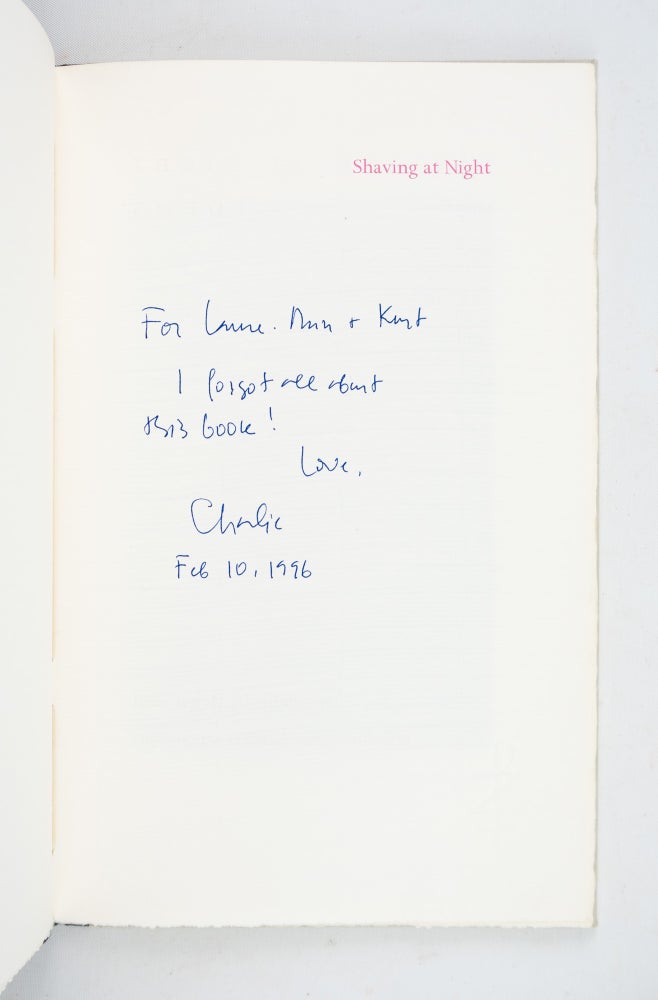 Shaving at Night
For Laurie. Ann + Kurt
I forgot all about
this book!
Love,
Charlie
Feb 10, 1996